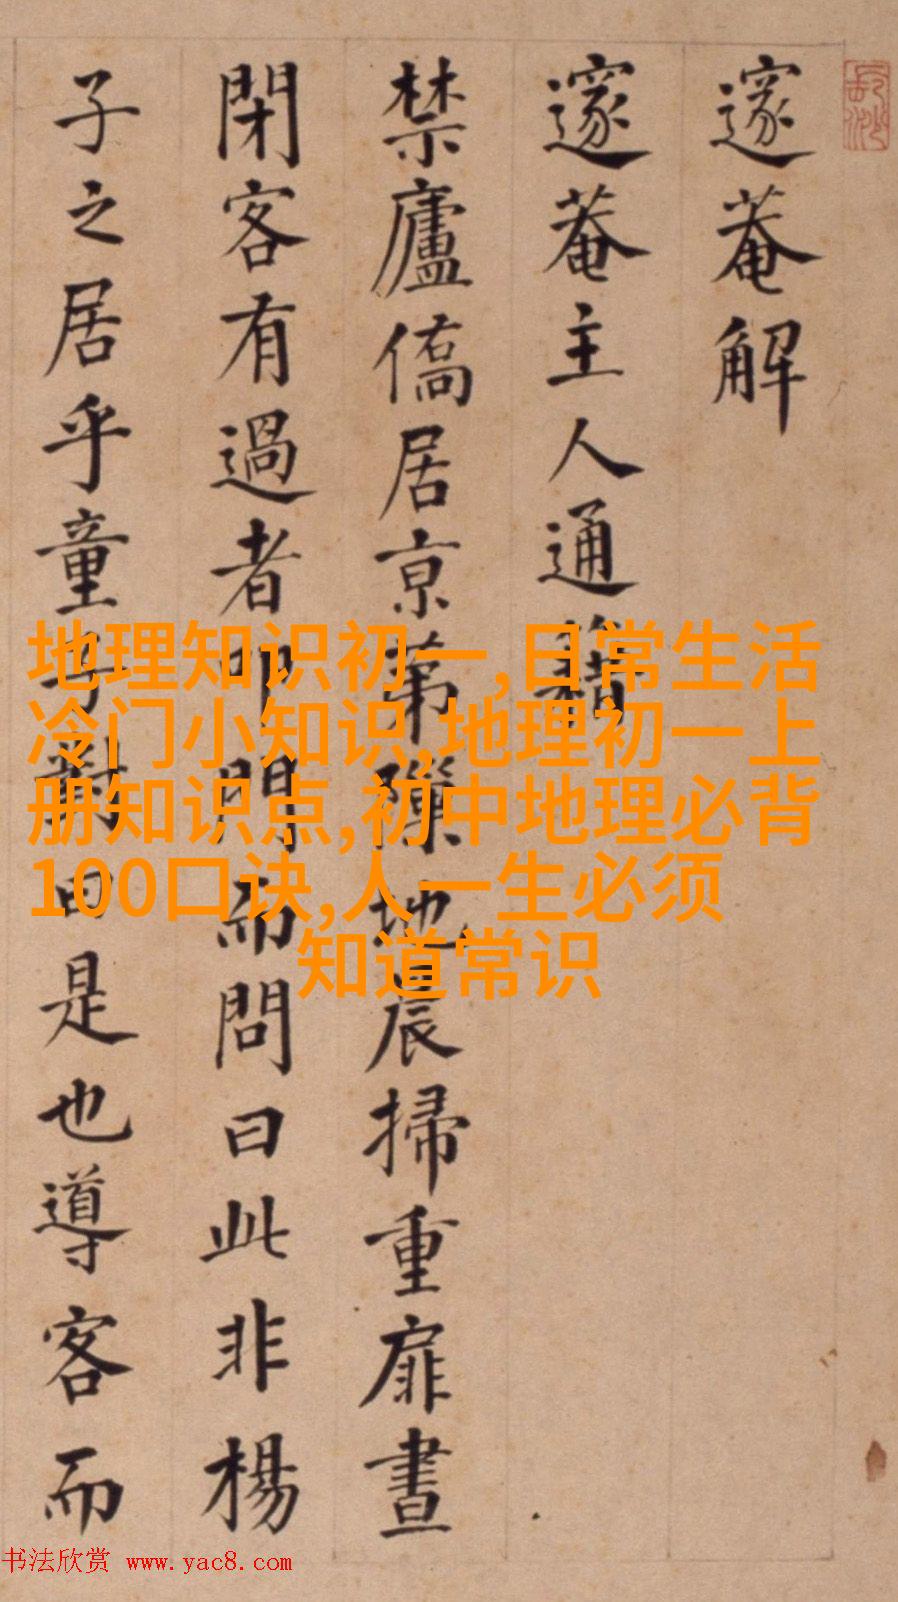 邃菴解
邃菴主人通籍
禁廬僑居京第隟地晨掃重扉晝
閉客有過者叩門而問曰此非楊
子之居乎童子對曰是也導客而
地理知识初一,日常生活
冷门小知识,地理初一上
册知识点,初中地理必背
100口诀,人一生必须
知道常识
书法欣赏 www.yac8.com